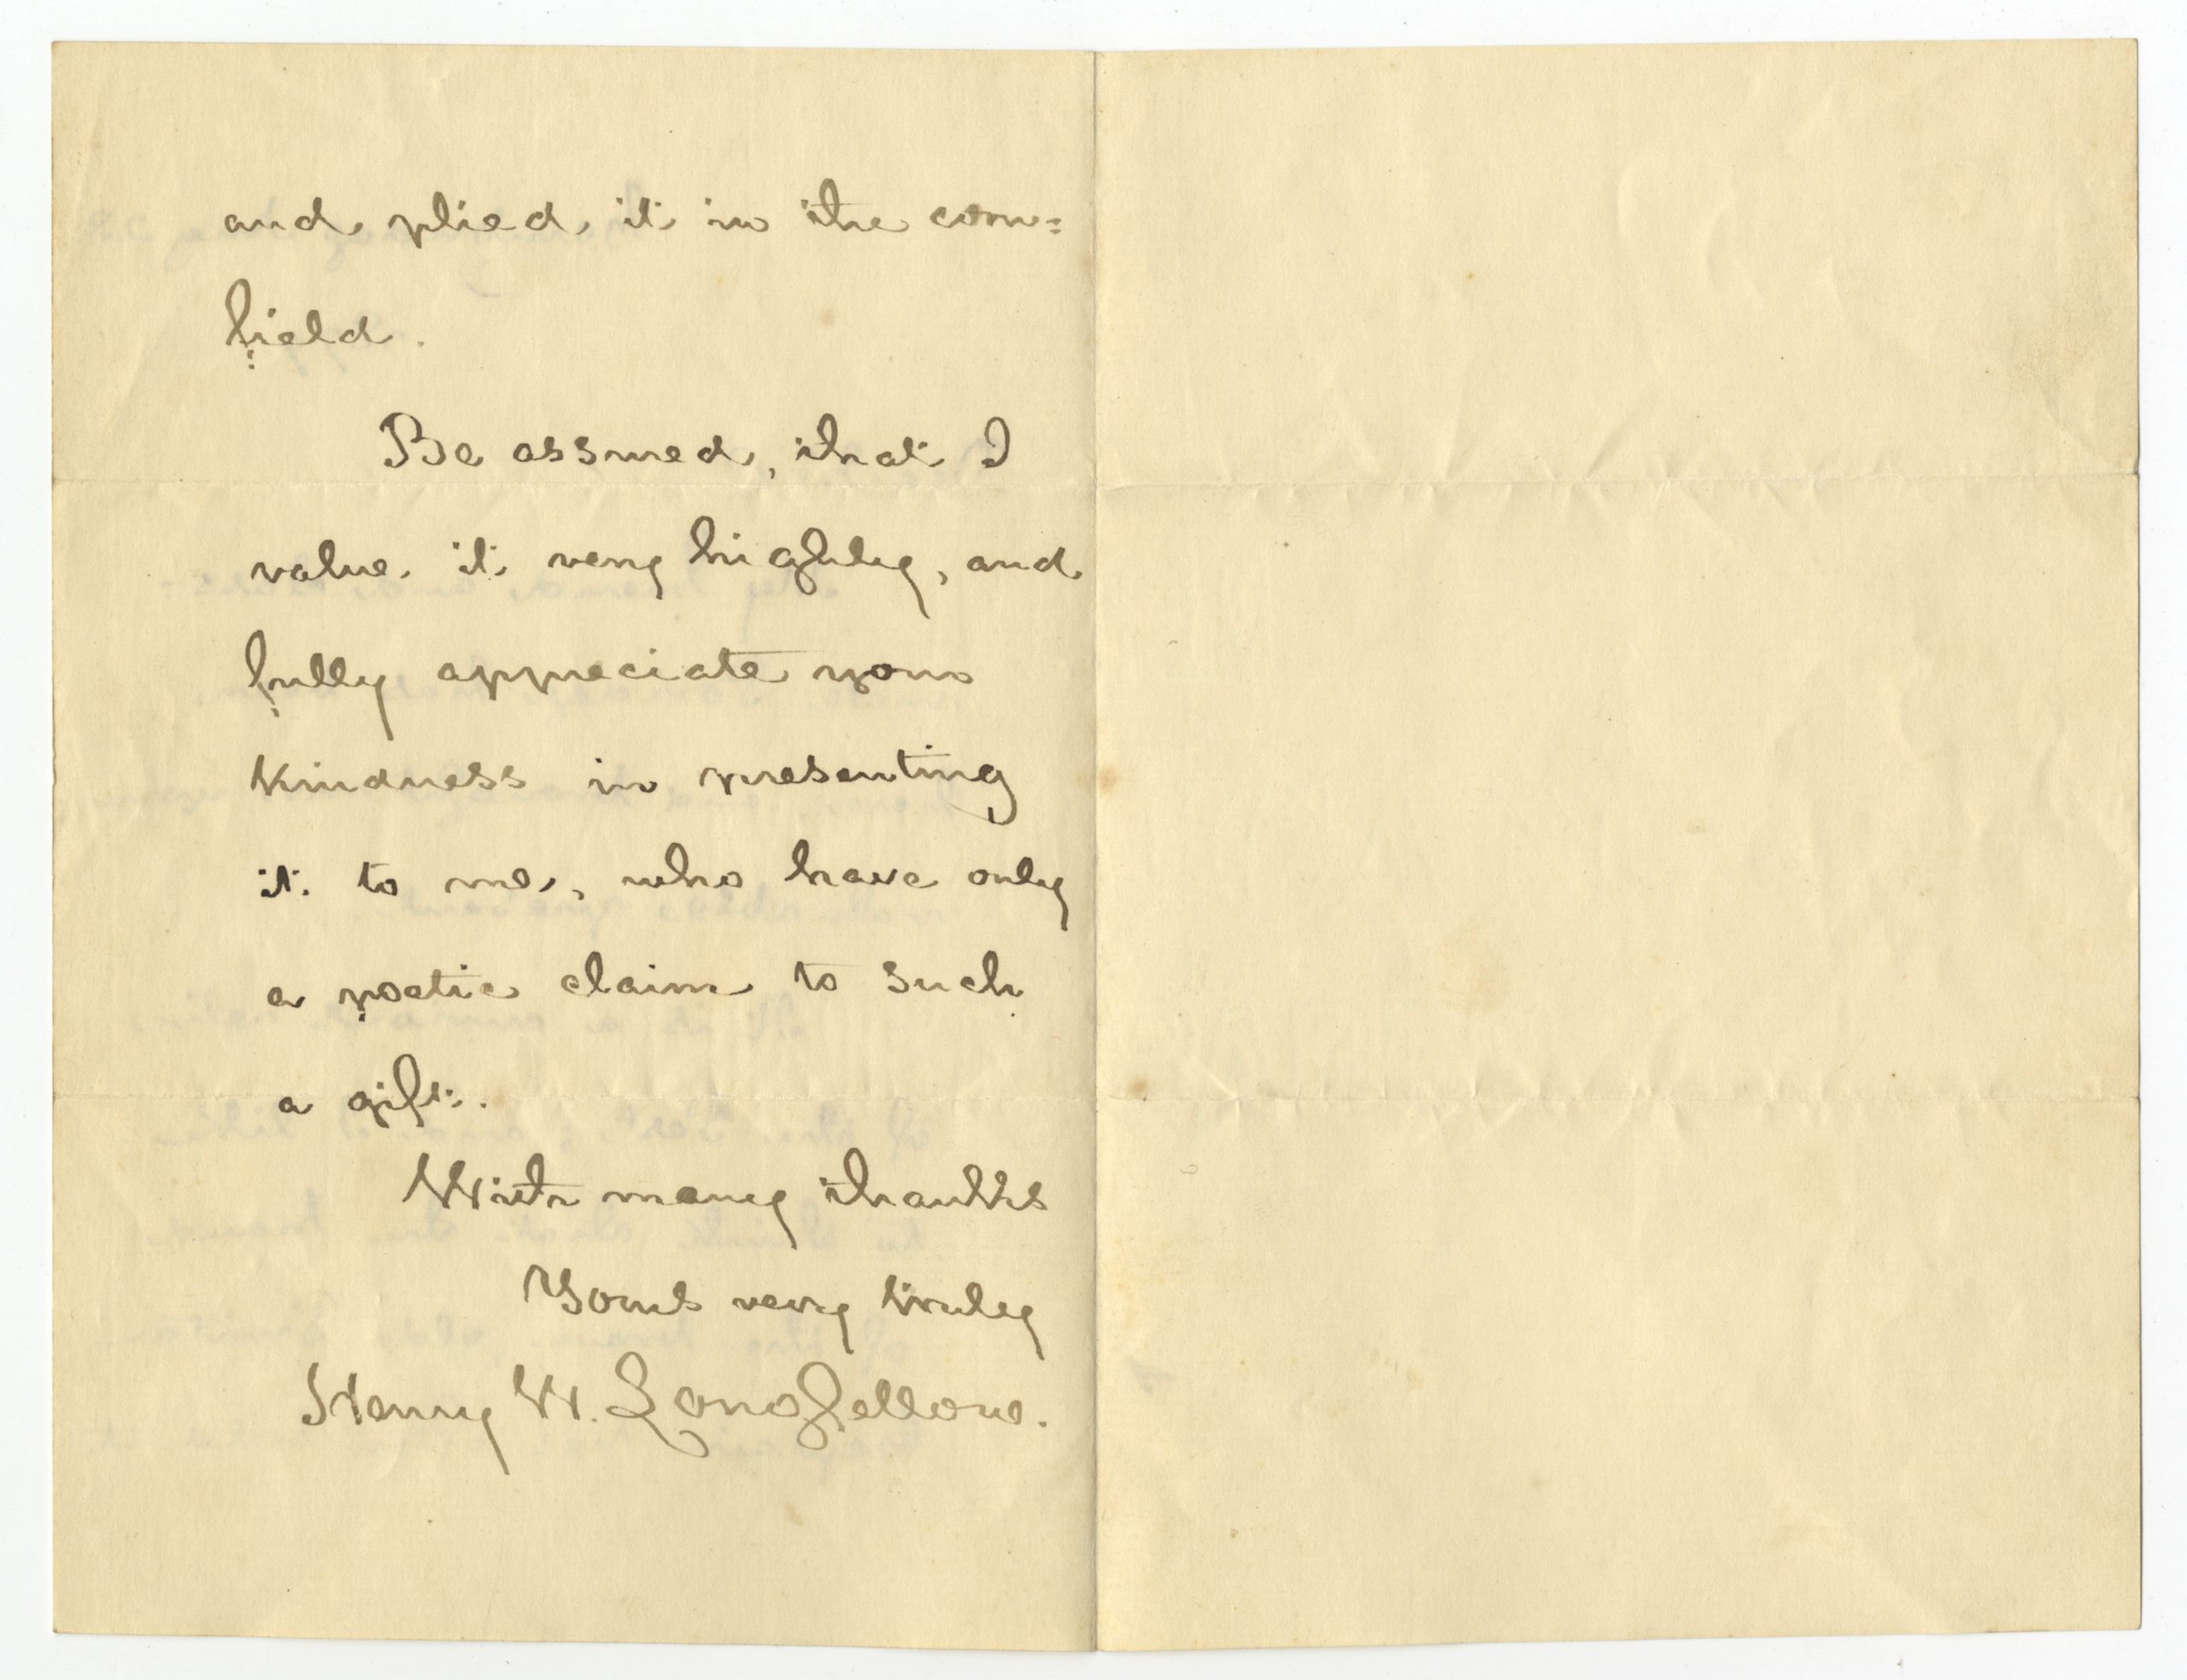 and plied it in the corn=
field.
Be assured, that I
value it very highly, and
fully appreciate your
kindness in presenting
it to me, who have only
a poetic claim to such
a gift.
With many thanks
Yours very truly
Henry W. Longfellow.